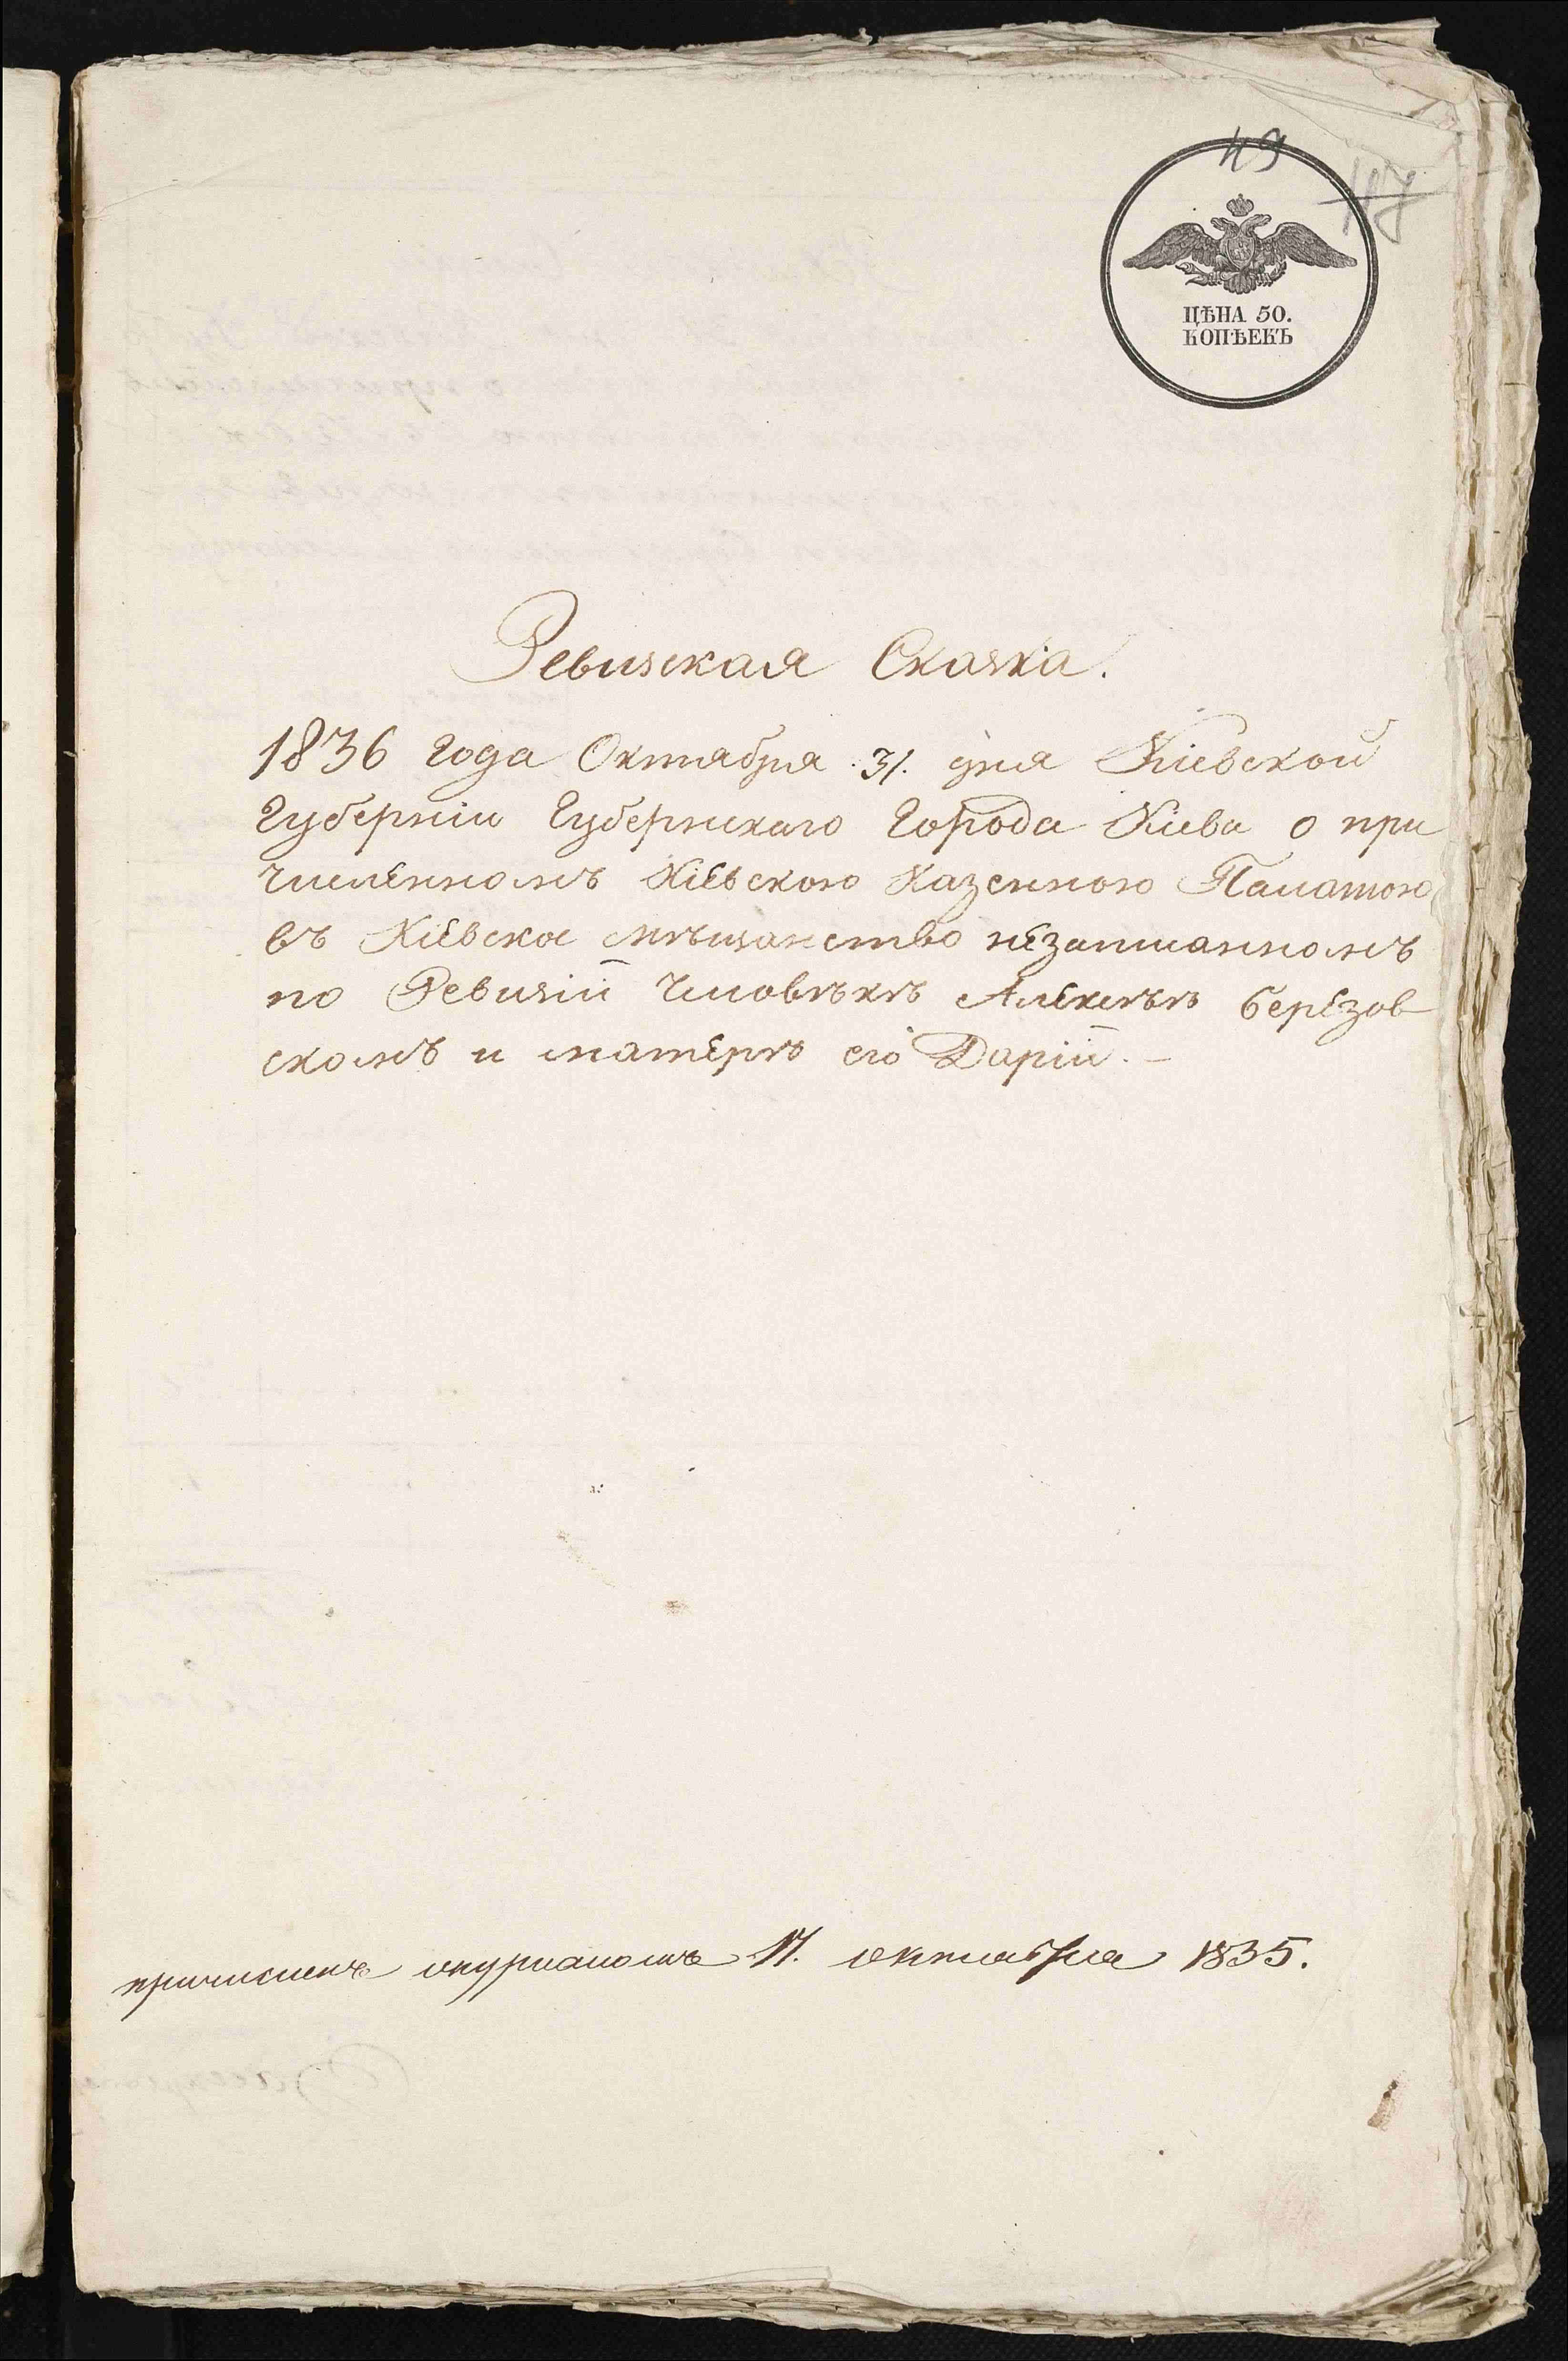 49
ЦѢНА 50.
КОПѢЕКЪ
Ревизская Сказка.
1836 Года Октября 31. дня Кіевской
Губерніи Губернскаго Города Кіева о при
численномъ Кіевскою Казенною Палатою
въ Кіевское мѣщанство незаписанномъ
по Ревизіи Человѣкѣ Алексѣѣ Березов
скомъ и матерѣ его Даріи. –
причисленъ журналомъ 17. октября 1835.